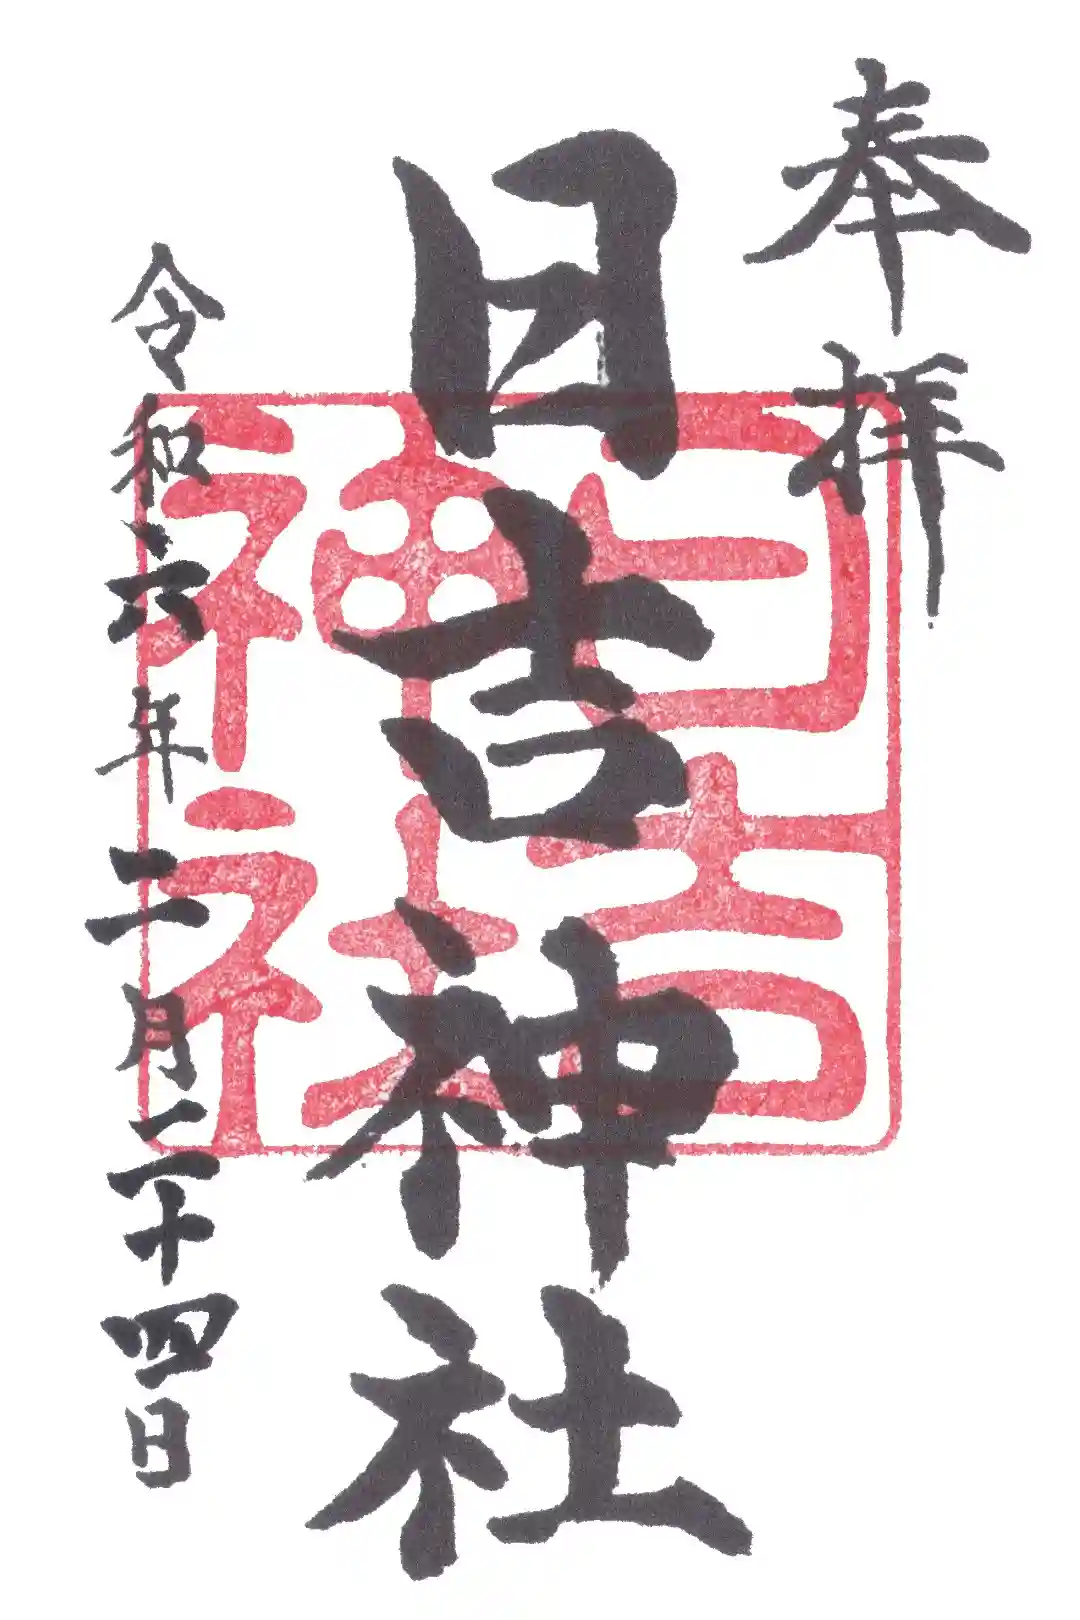 奉拝
日吉神社
日吉
神社
令和六年二月二十四日